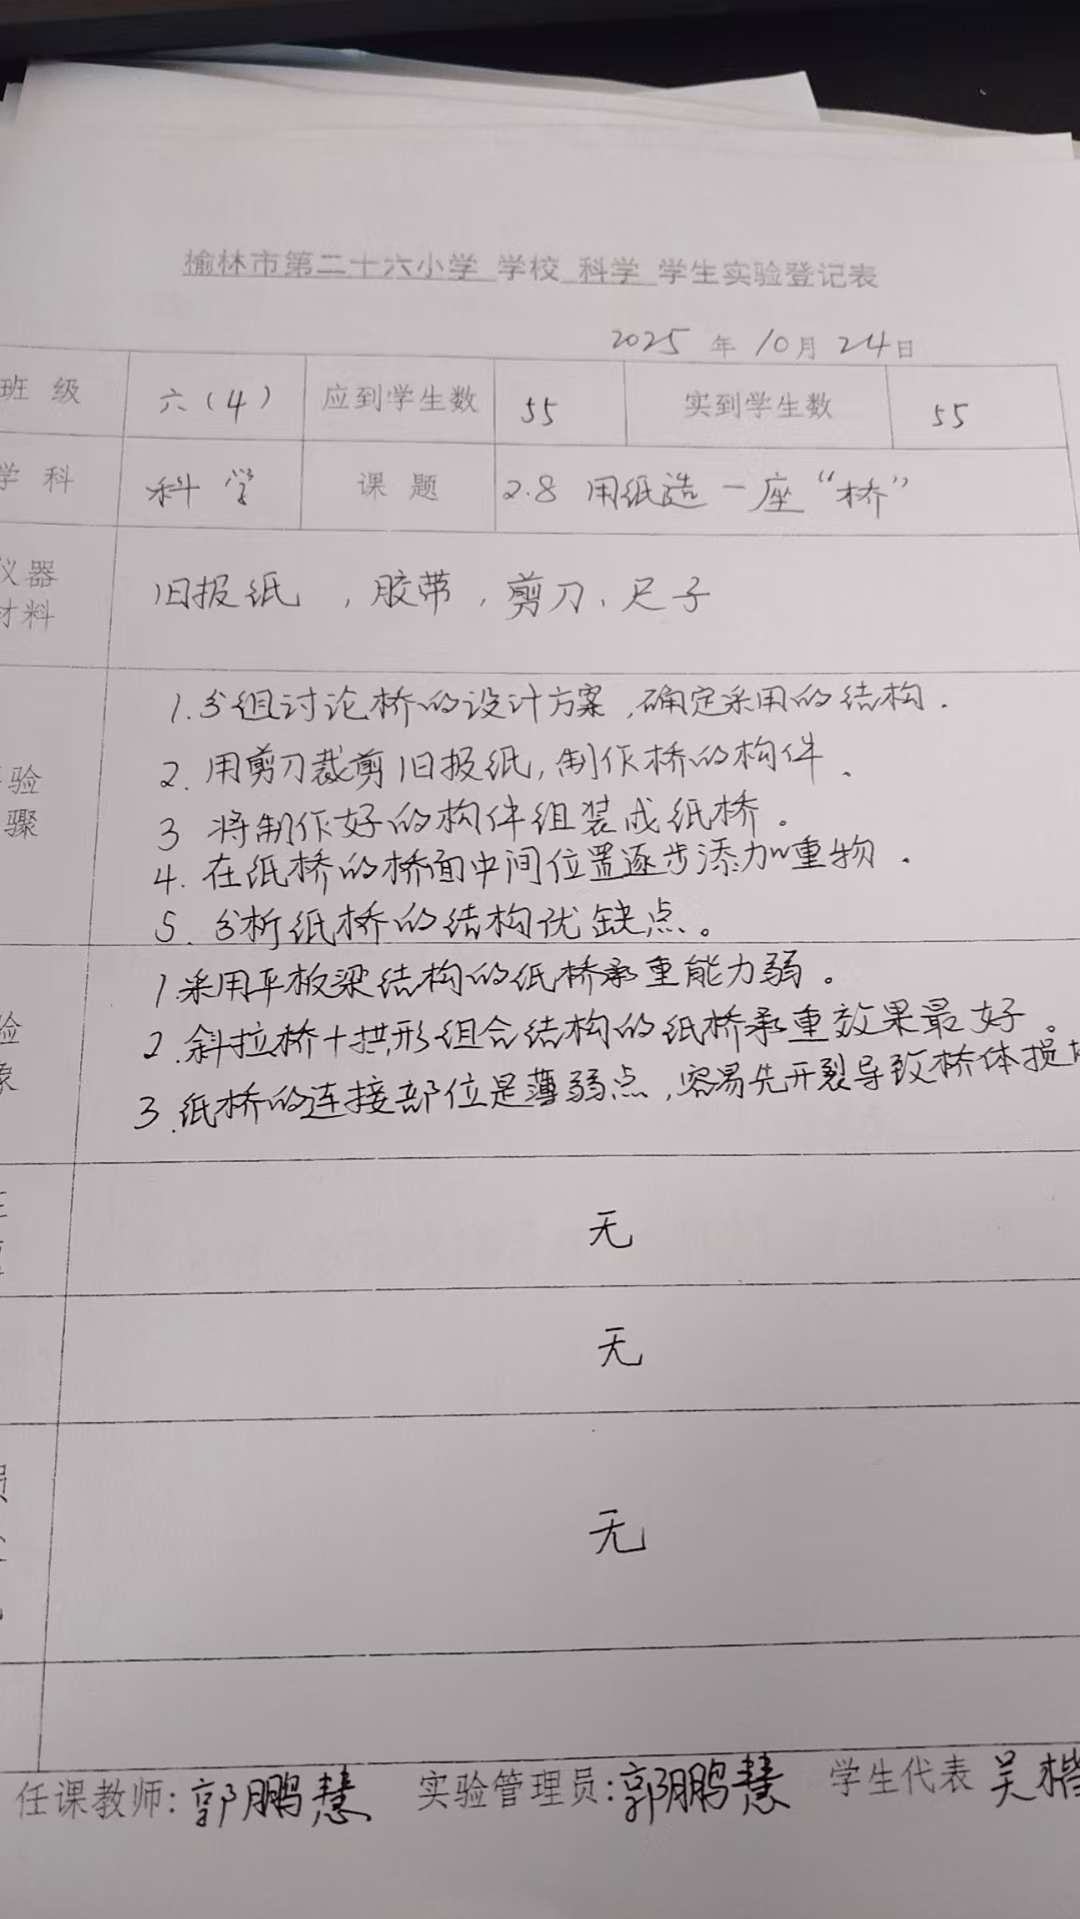 榆林市第二十六小学 学校 科学 学生实验登记表
2025 年 10月 24日
班 级 六（4） 应到学生数 55 实到学生数 55
学 科 科学 课 题 2.8 用纸造一座“桥”
仪器
材料
旧报纸 ，胶带，剪刀、尺子
验
骤
1.分组讨论桥的设计方案，确定采用的结构.
2. 用剪刀裁剪旧报纸，制作桥的构件.
3 将制作好的构件组装成纸桥。
4. 在纸桥的桥面中间位置逐步添加重物.
5. 分析纸桥的结构优缺点。
1.采用平板梁结构的纸桥承重能力弱。
2.斜拉桥+拱形组合结构的纸桥承重效果最好。
3.纸桥的连接部位是薄弱点，容易先开裂导致桥体损
无
无
无
任课教师: 郭鹏慧 实验管理员: 郭鹏慧 学生代表 吴